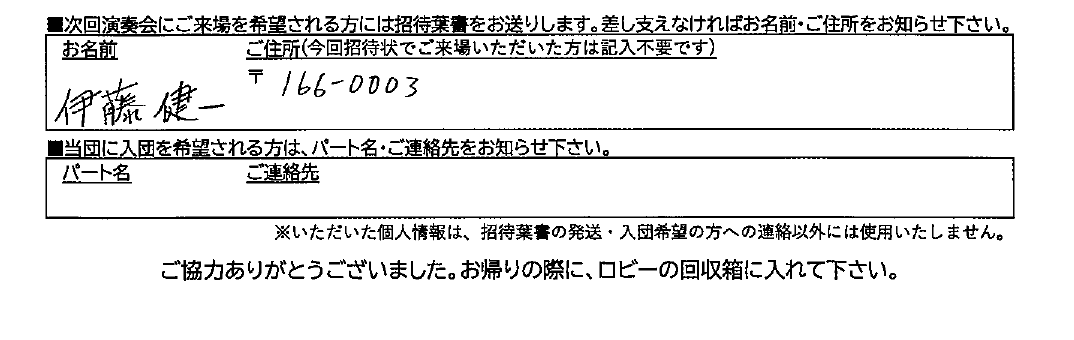 ■次回演奏会にご来場を希望される方には招待葉書をお送りします。差し支えなければお名前・ご住所をお知らせ下さい。
お名前 ご住所(今回招待状でご来場いただいた方は記入不要です)
〒 166-0003
伊藤健一
■当団に入団を希望される方は、パート名・ご連絡先をお知らせ下さい。
パート名 ご連絡先
※いただいた個人情報は、招待葉書の発送・入団希望の方への連絡以外には使用いたしません。
ご協力ありがとうございました。お帰りの際に、ロビーの回収箱に入れて下さい。